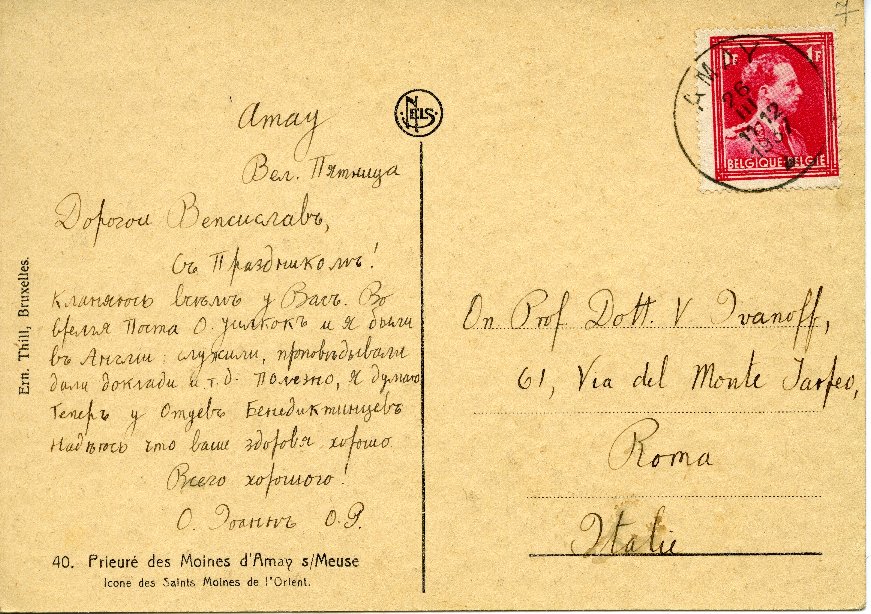 Amay
Вел. Пятница
Дорогои Венсиславъ,
съ Праздникомъ!
Кланяюсь всѣмъ у Васъ. Во
время Поста О. и я были
въ Англии: служили, проповѣдывали
дали доклади и.т.д. Полезно, я думаю
Теперъ у Отцевъ Бенедиктинцевъ
Надѣюсь что ваше здоровя хорошо
Всего хорошого!
О. Іоаннъ О.Р.
40. Prieuré des Moines d'Amay s/Meuse
Icone des Saints Moines de l'Orient.
Ern. Thill, Bruxelles.
NELS
1F 1F
BELGIQUE-BELGIË
AMAY
26
III
11-12
1937
On Prof Dott. V Ivanoff,
61, Via del Monte Tarpeo,
Roma
Italie